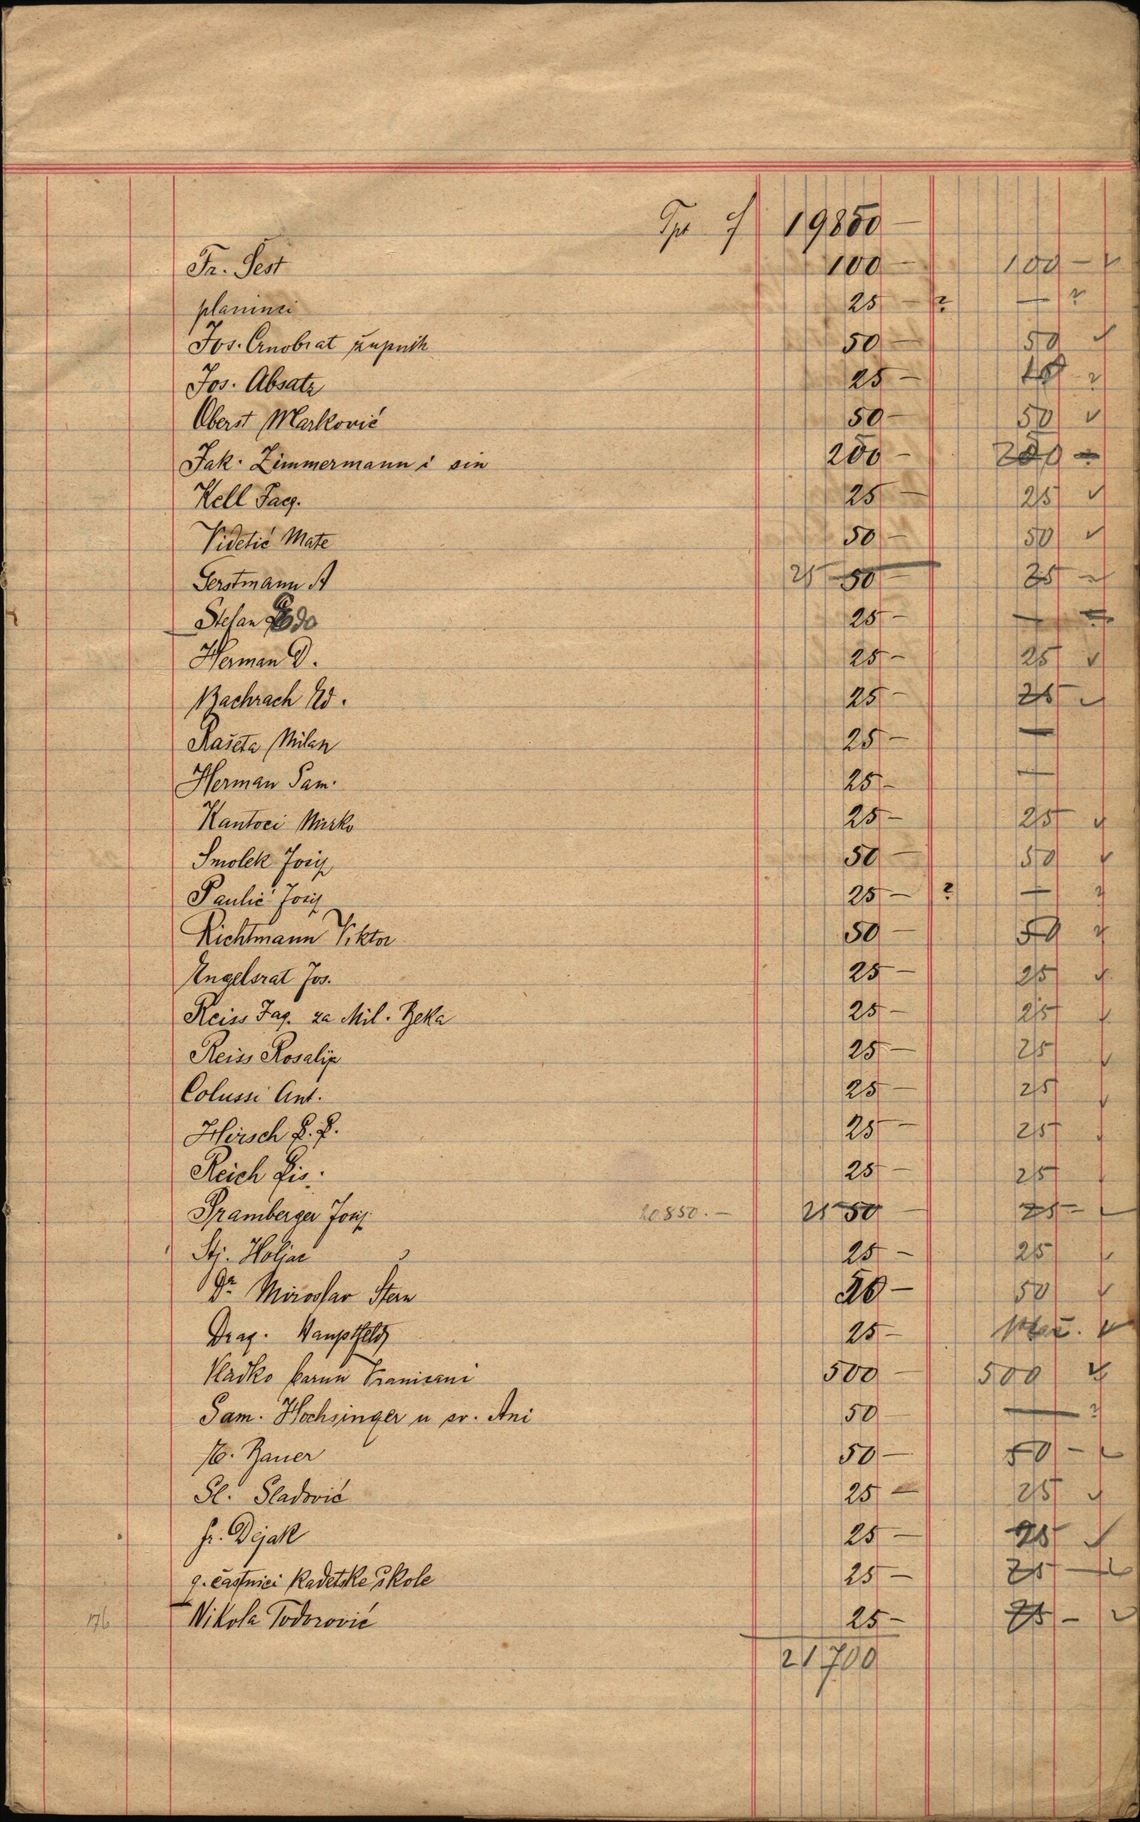 Tpt f 19850 —
Fr. Šest 100 — 100 — ✓
planinci 25 — ? — ?
Jos. Crnobrat župnik 50 — 50 ✓
Jos. Absatz 25 — ?
Oberst Marković 50 — 50 ✓
Jak. Zimmermann i sin 200 — 200 —
Kell Jacq. 25 — 25 ✓
Videtić Mate 50 — 50 ✓
Gerstmann A 25 50 — 25
Stefan Edo 25 — —
Herman D. 25 — 25 ✓
Bachrach Ed. 25 — 25 ✓
Rašeta Milan 25 — —
Herman Sam. 25 — —
Kantoci Mirko 25 — 25 ✓
Smolek Josip 50 — 50 ✓
Paulić Josip 25 — ? — ?
Richtmann Viktor 50 — 50 ?
Engelsrat Jos. 25 — 25 ✓
Reiss Jaq. za Mil. Beka 25 — 25 ✓
Reiss Rosalija 25 — 25 ✓
Colussi Ant. 25 — 25 ✓
Hirsch L. L. 25 — 25
Reich Lis. 25 — 25
Pramberger Josip 20850. — 25 50 — 25 — ✓
Stj. Holjac 25 — 25 ✓
Dr. Miroslav Stern 50 — 50 ✓
Drag. Hauptfeld 25 — ✓
Vladko barun Vranicani 500 — 500 ✓
Sam. Hochsinger u sv. Ani 50 — ?
M. Bauer 50 — 50 — ✓
Sl. Sladović 25 — 25 ✓
fr. Dejak 25 — 25 ✓
g. častnici kadetske škole 25 — 25 — ✓
176 Nikola Todorović 25 — 25 — ✓
21700